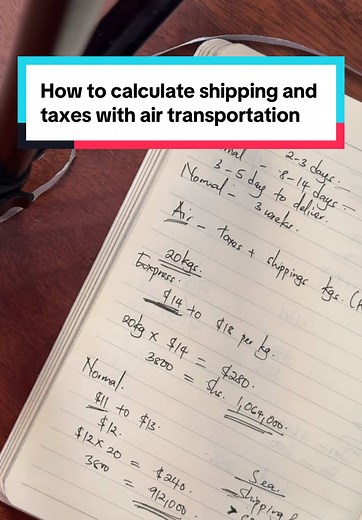 How to calculate shipping and
taxes with air transportation
2-3 days.
8-14 days.
3-5 day to deliver.
Normal - 3 weeks.
Air - taxes + shippings kgs.
20kgs.
Express.
$14 to $18 per kg.
20kg × $14 = $280.
3800 = Shs. 1,064,000.
Normal.
$11 to $13
$12.
$12×20 = $240.
3800 = 912,000.
Sea
Shipping